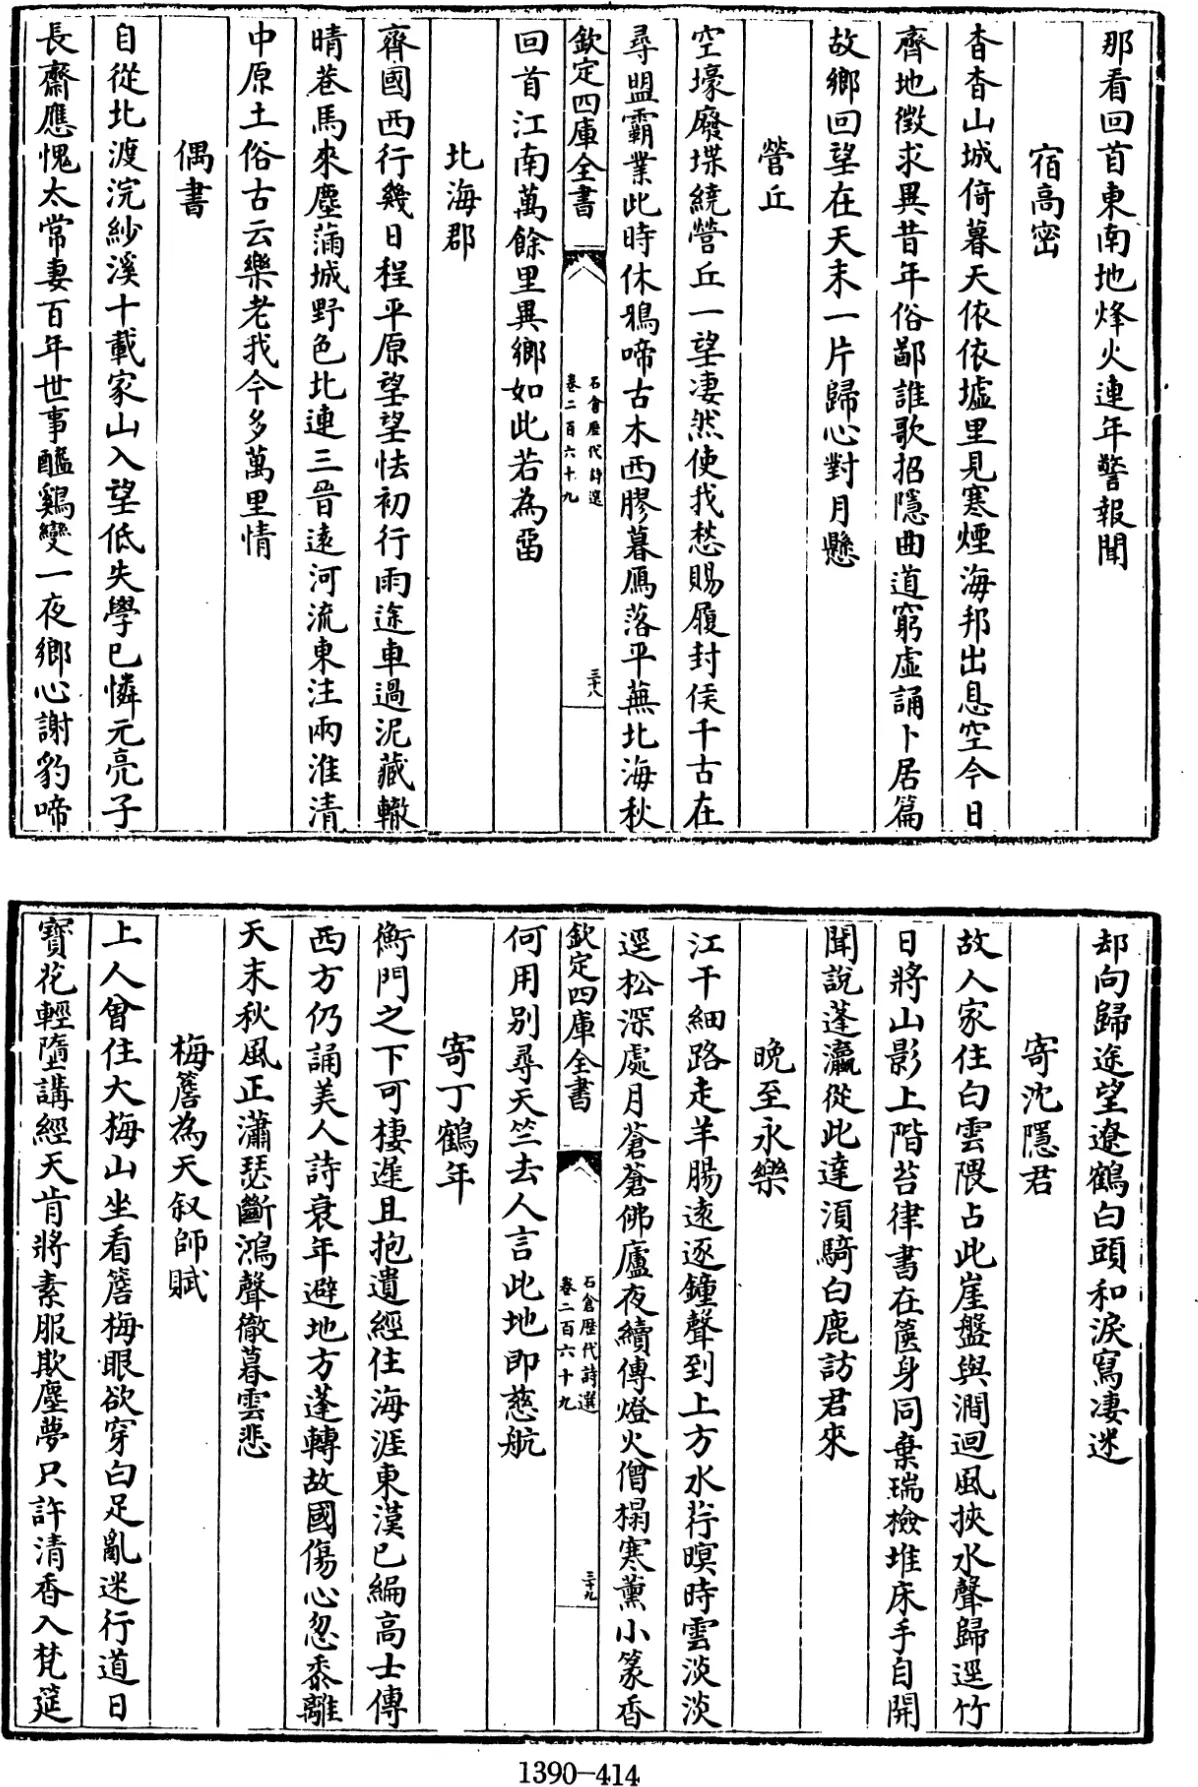 那看回首東南地烽火連年警報聞
宿高密
杳杳山城倚暮天依依墟里見寒煙海邦出息空今日
齊地徴求異昔年俗鄙誰歌招隱曲道窮虛誦卜居篇
故鄉回望在天末一片歸心對月懸
營丘
空壕廢堞繞營丘一望凄然使我愁賜履封侯千古在
尋盟霸業此時休鴉啼古木西膠暮鴈落平蕪北海秋
欽定四庫全書
石倉歷代詩選
卷二百六十九
三十八
回首江南萬餘里異鄉如此若為畱
北海郡
齊國西行幾日程平原望望怯初行雨途車過泥藏轍
晴巷馬來塵滿城野色北連三晉遠河流東注兩淮清
中原土俗古云樂老我今多萬里情
偶書
自從北渡浣紗溪十載家山入望低失學已憐元亮子
長齋應愧太常妻百年世事醯鷄變一夜鄉心謝豹啼
却向歸途望遼鶴白頭和淚寫凄迷
寄沈隱君
故人家住白雲隈占此崖盤與澗迴風挾水聲歸逕竹
日將山影上階苔律書在篋身同棄瑞檢堆床手自開
聞說蓬瀛從此達湏騎白鹿訪君來
晚至永樂
江干細路走羊腸遠逐鐘聲到上方水荇暝時雲淡淡
逕松深處月蒼蒼佛廬夜續傳燈火僧榻寒薰小篆香
欽定四庫全書
石倉歷代詩選
卷二百六十九
三十九
何用别尋天竺去人言此地即慈航
寄丁鶴年
衡門之下可棲遲且抱遺經住海涯東漢已編高士傳
西方仍誦美人詩衰年避地方蓬轉故國傷心忽黍離
天末秋風正瀟瑟斷鴻聲徹暮雲悲
梅簷為天叙師賦
上人曾住大梅山坐看簷梅眼欲穿白足亂迷行道日
寶花輕墮講經天肯將素服欺塵夢只許清香入梵筵
1390—414